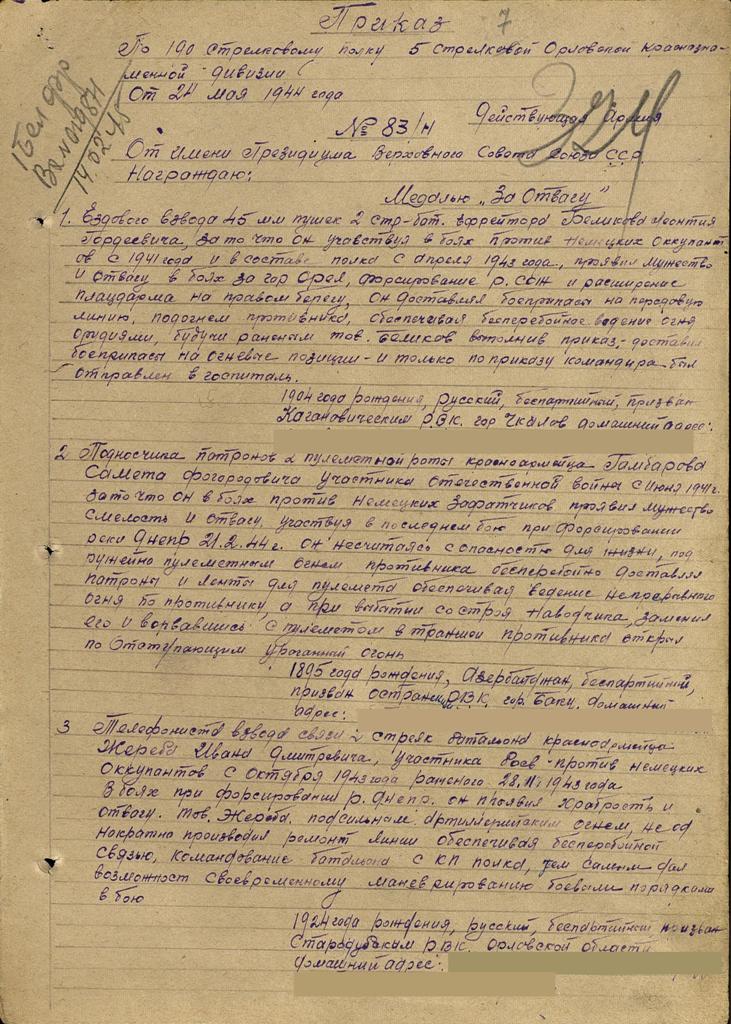 Приказ 7
По 190 стрелковому полку 5 стрелковой Орловской Краснозна-
менной дивизии
От 24 мая 1944 года
Действующая Армия
№ 83/н
224
1 Бел фр
14.02.45
От имени Президиума Верховного Совета Союза ССР
Награждаю:
Медалью „За Отвагу"
1. Ездового взвода 45 мм пушек 2 стр-бат. ефрейтора Беликова Леонтия
Гордеевича, за то что он учавствуя в боях против Немецких Оккупант
ов с 1941 года и в составе полка с апреля 1943 года, проявил мужество
и отвагу в боях за гор Орел, форсирование р. Сож и расширение
плацдарма на правом берегу, он доставлял боеприпасы на передовую
линию, под огнем противника, обеспечивая бесперебойное ведение огня
орудиями, будучи раненым тов. Беликов выполнив приказ-доставил
боеприпасы на огневые позиции-и только по приказу командира был
отправлен в госпиталь.
1904 года рождения, русский, беспартийный, призван
Кагановическим РВК. гор Чкалов домашний адрес:
2 Подносчика патронов 2 пулеметной роты красноармейца Гамбарова
Самета участника Отечественной войны с Июня 1941 г.
за то что он в боях против Немецких Захватчиков проявил мужество
смелость и отвагу, участвуя в последнем бою при форсировании
реки Днепр 21.2.44 г. он несчитаясь с опасностью для жизни, под
ружейно пулеметным огнем противника бесперебойно доставлял
патроны и ленты для пулемета обеспечивая ведение непрерывного
огня по противнику, а при выбытии со строя Наводчика, заменил
его и ворвавшись с пулеметом в траншеи противника открыл
по Отступающим ураганный огонь
1895 года рождения, Азербайджан, беспартийный,
призван РВК. гор. Баку. домашний
адрес:
3 Телефониста взвода связи 2 стрелк батальона красноармейца
Жереба Ивана Дмитревича, участника боев против немецких
оккупантов с октября 1943 года раненого 28.11.1943 года
В боях при форсировании р. Днепр. он проявил храбрость и
отвагу. тов. Жереба, под сильным артиллерийским огнем, не од
нократно производил ремонт линии обеспечивая бесперебойной
связью, командование батальона с КП полка, тем самым дал
возможност своевременному маневрированию боевыми порядками
в бою
1924 года рождения, русский, беспартийный призван
Стародубским РВК. Орловской области
домашний адрес: